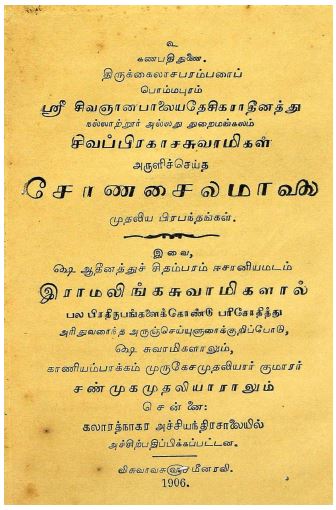 உ
கணபதிதுணை.
திருக்கைலாசபரம்பரைப்
பொம்மபுரம்
ஸ்ரீ சிவஞானபாலையதேசிகராதீனத்து
நல்லாற்றூர் அல்லது துறைமங்கலம்
சிவப்பிரகாசசுவாமிகள்
அருளிச்செய்த
சோணசைலமாலை
முதலிய பிரபந்தங்கள்.
இவை,
ஷெ ஆதீனத்துச் சிதம்பரம் ஈசானியமடம்
இராமலிங்கசுவாமிகளால்
பல பிரதிரூபங்களைக்கொண்டு பரிசோதித்து
அரிதுவரைந்த அருஞ்செய்யுளுரைக்குறிப்போடு,
ஷெ சுவாமிகளாலும்,
காணியம்பாக்கம் முருகேசமுதலியார் குமாரர்
சண்முகமுதலியாராலும்
சென்னை:
கலாரத்நாகர அச்சியந்திரசாலையில்
அச்சிற்பதிப்பிக்கப்பட்டன.
விசுவாவசுளு மீனரவி.
1906.